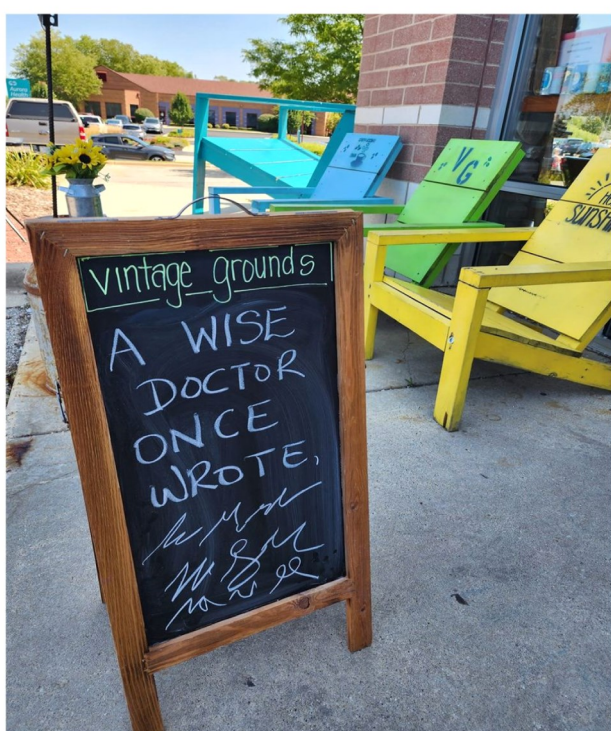 vintage grounds
A WISE
DOCTOR
ONCE
WROTE,
VG
SUNSHINE
Aurora